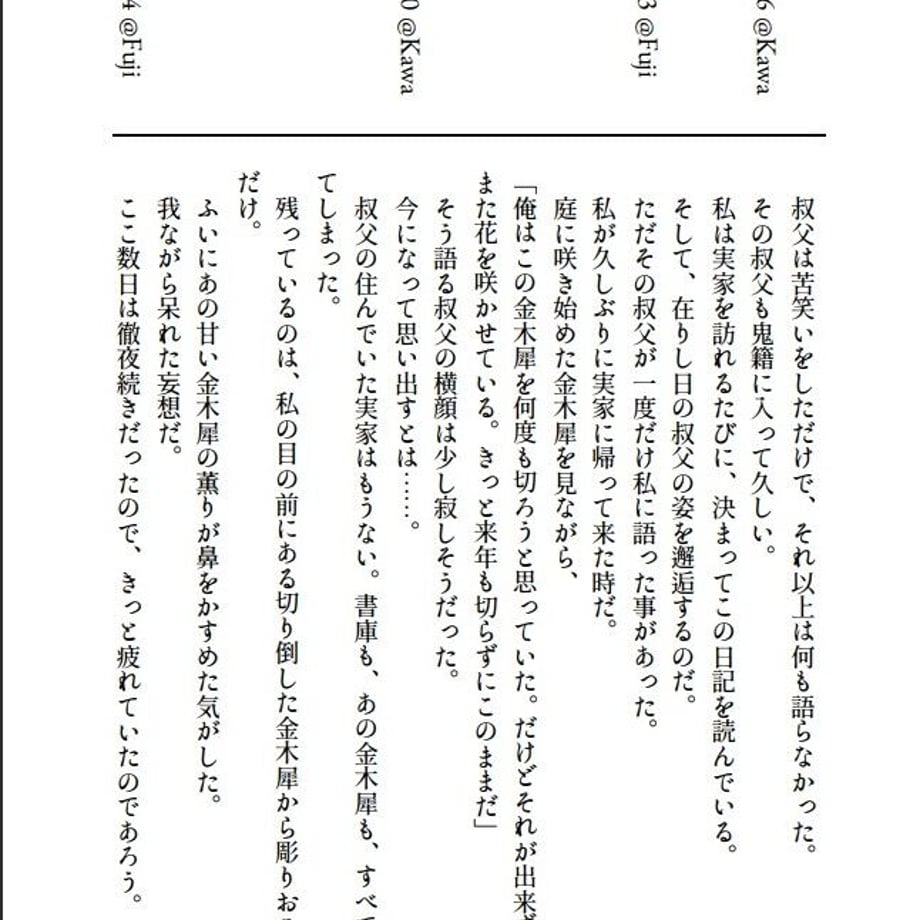 6 @Kawa
3 @Fuji
0 @Kawa
4 @Fuji
叔父は苦笑いをしただけで、それ以上は何も語らなかった。
その叔父も鬼籍に入って久しい。
私は実家を訪れるたびに、決まってこの日記を読んでいる。
そして、在りし日の叔父の姿を邂逅するのだ。
ただその叔父が一度だけ私に語った事があった。
私が久しぶりに実家に帰って来た時だ。
庭に咲き始めた金木犀を見ながら、
「俺はこの金木犀を何度も切ろうと思っていた。だけどそれが出来ず
また花を咲かせている。きっと来年も切らずにこのままだ」
そう語る叔父の横顔は少し寂しそうだった。
今になって思い出すとは……。
叔父の住んでいた実家はもうない。書庫も、あの金木犀も、すべ
てしまった。
残っているのは、私の目の前にある切り倒した金木犀から彫りお
だけ。
ふいにあの甘い金木犀の薫りが鼻をかすめた気がした。
我ながら呆れた妄想だ。
ここ数日は徹夜続きだったので、きっと疲れていたのであろう。